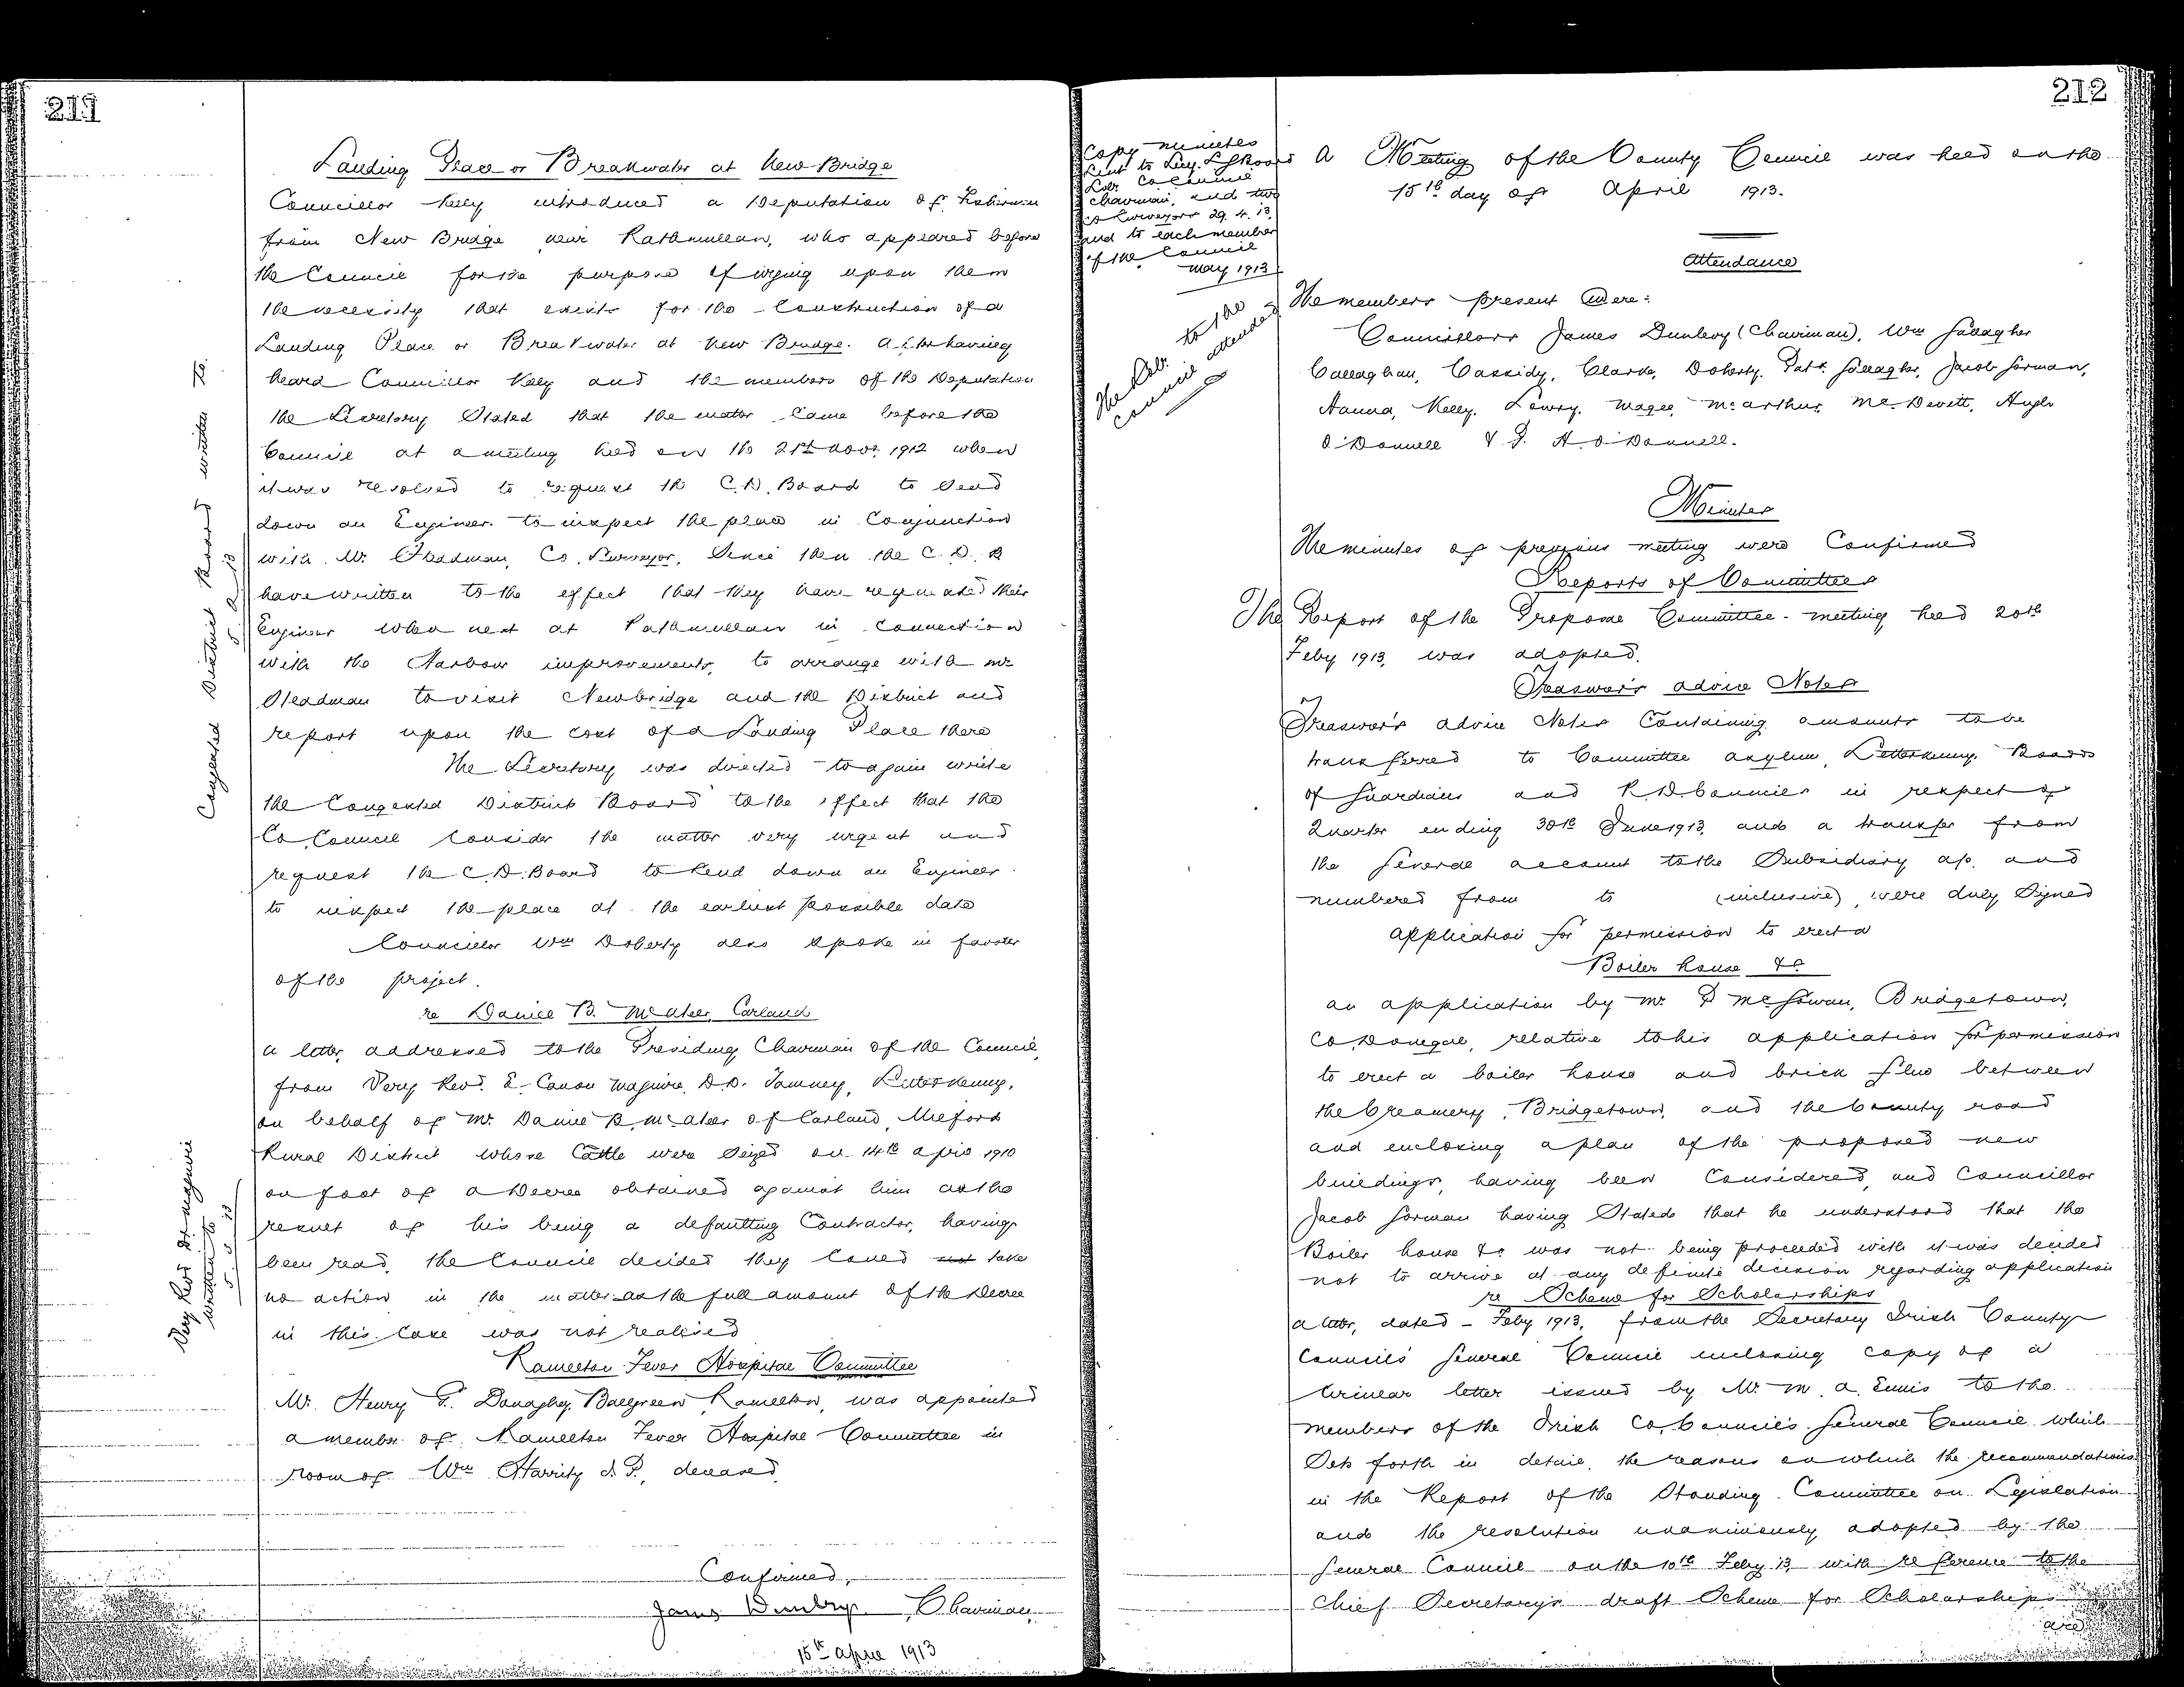 211
Landing Place or Breakwater at New Bridge
Councillor Kelly introduced a Deputation of Fishermen
from New Bridge near Rathmullan, who appeared before
the Council for the purpose of urging upon them
the necessity that exists for the Construction of a
Landing Place or Breakwater at New Bridge. After having
heard Councillor Kelly and the members of the Deputation
the Secretary Stated that the matter Came before the
Council at a meeting held on the 21st Novr 1912 when
it was resolved to request the C.D. Board to Send
down an Engineer to inspect the place in Conjunction
with Mr. Steadman, Co. Surveyor, Since then the C. D. B
have written to the effect that they have requested their
Engineer when next at Rathmullan in Connection
with the Harbour improvements, to arrange with Mr
Steadman to visit Newbridge and the District and
report upon the cost of a Landing Place there
The Secretary was directed to again write
the Congested Districts Board to the effect that the
Co. Council Consider the matter very urgent and
request the C.D. Board to Send down an Engineer
to inspect the place at the earliest possible date
Councillor Wm Doherty also spoke in favour
of the project.
Congested District Board written to.
5. 5. 13
re Daniel B. McAteer, Carland
a letter, addressed to the Presiding Chairman of the Council,
from Very Revd. E. Canon Maguire D.D. Tamney, Letterkenny,
on behalf of Mr. Daniel B. McAteer of Carland, Milford
Rural District whose Cattle were Seized on 14th April 1910
on foot of a Decree obtained against him as the
result of his being a defaulting Contractor, having
been read, the Council decided they Could not take
no action in the matter as the full amount of the Decree
in this Case was not realised
Very Revd Dr. Maguire
written to
5. 5. 13
Ramelton Fever Hospital Committee
Mr. Henry P. Donaghy, Ballygreen Ramelton, was appointed
a member of Ramelton Fever Hospital Committee in
room of Wm Harrity J. P., deceased
Confirmed,
James Dunlevy, Chairman
15th April 1913
212
Copy minutes
Sent to Sec. L G Board
Solr. Co Council
Chairman, and two
Co Surveyors 29. 4. 13,
and to each member
of the Council
May 1913
The Solr. to the
Council attended
A Meeting of the County Council was held on the
15th day of April 1913.
Attendance
The members present Were:
Councillors James Dunlevy (Chairman), Wm Gallagher
Callaghan, Cassidy, Clarke, Doherty, Patk. Gallagher, Jacob Gorman,
Hanna, Kelly, Lowry, Magee, McArthur, McDevitt, Hugh
O'Donnell & P. H. O'Donnell.
Minutes
The minutes of previous meeting were Confirmed
Reports of Committees
The Report of the Proposal Committee meeting held 20th
Feby 1913, was adopted.
Treasurer's advice Notes
Treasurer's advice Notes Containing amounts to be
transferred to Committee Asylum, Letterkenny, Boards
of Guardians and R.D. Councils in respect of
Quarter ending 30th June 1913, and a transfer from
the General account to the Subsidiary a/c. and
numbered from to (inclusive), were duly Signed
Application for permission to erect a
Boiler house &c
an application by Mr. P McGowan, Bridgetown,
Co. Donegal, relative to his application for permission
to erect a boiler house and brick flue between
the Creamery, Bridgetown, and the County road
and enclosing a plan of the proposed new
buildings, having been Considered, and Councillor
Jacob Gorman having Stated that he understood that the
Boiler house &c was not being proceeded with it was decided
not to arrive at any definite decision regarding application
re Scheme for Scholarships
a letter, dated - Feby 1913, from the Secretary Irish County
Councils' General Council enclosing copy of a
Circular letter issued by Mr. M. A. Ennis to the
members of the Irish Co. Councils General Council which
Sets forth in detail, the reasons on which the recommendations
in the Report of the Standing Committee on Legislation
and the resolution unanimously adopted by the
General Council on the 10th Feby 13, with reference to the
Chief Secretary's draft Scheme for Scholarships
are